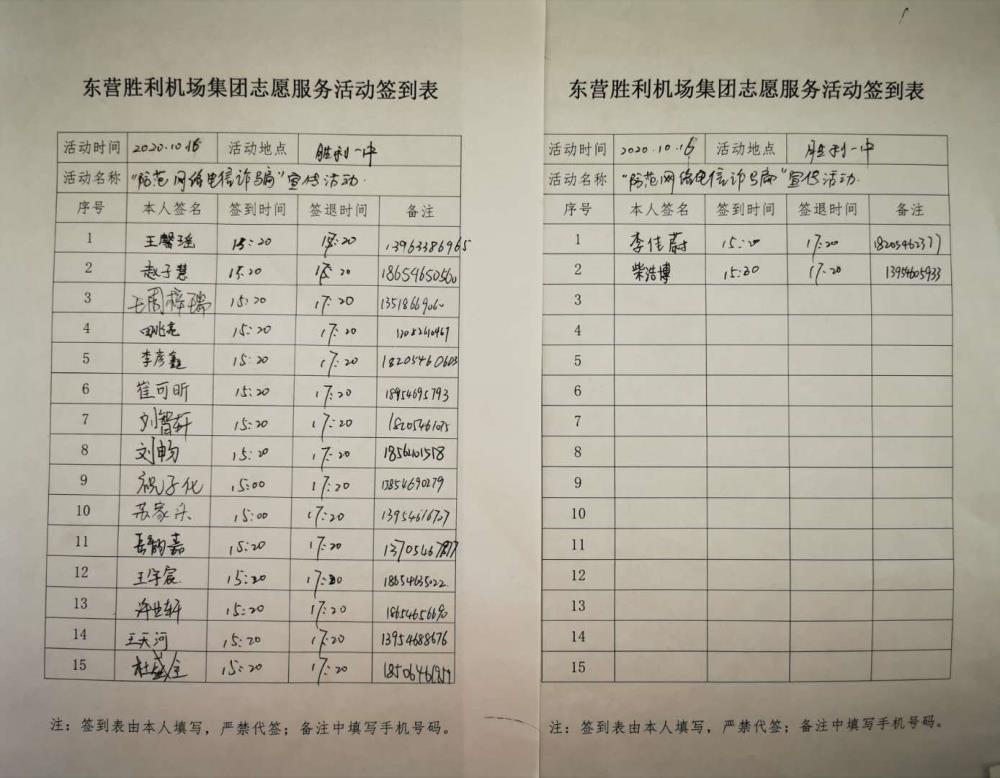 东营胜利机场集团志愿服务活动签到表
活动时间 2020.10.16 活动地点 胜利一中
活动名称 "防范网络电信诈骗"宣传活动.
序号 本人签名 签到时间 签退时间 备注
1 王馨瑶 15:20 17:20 13963386965
2 赵子慧 15:20 17:20 18654650560
3 王周梓瑞 15:20 17:20
4 15:20 17:20
5 李彦鑫 15:20 17:20 18205460603
6 崔可昕 15:20 17:20 18954695793
7 刘智轩 15:20 17:20
8 刘畅 15:20 17:20
9 祝子化 15:00 17:20 13854690279
10 苏家乐 15:00 17:20
11 岳韵嘉 15:20 17:20
12 王宇宸 15:20 17:20 18654635022
13 许世轩 15:20 17:20 18654656690
14 王天河 15:20 17:20 13954688676
15 杜盛全 15:20 17:20
注：签到表由本人填写，严禁代签；备注中填写手机号码。
东营胜利机场集团志愿服务活动签到表
活动时间 2020.10.16 活动地点 胜利一中
活动名称 "防范网络电信诈骗"宣传活动.
序号 本人签名 签到时间 签退时间 备注
1 李佳蔚 15:20 17:20 18205462377
2 柴浩博 15:20 17:20 13954605933
3
4
5
6
7
8
9
10
11
12
13
14
15
注：签到表由本人填写，严禁代签；备注中填写手机号码。